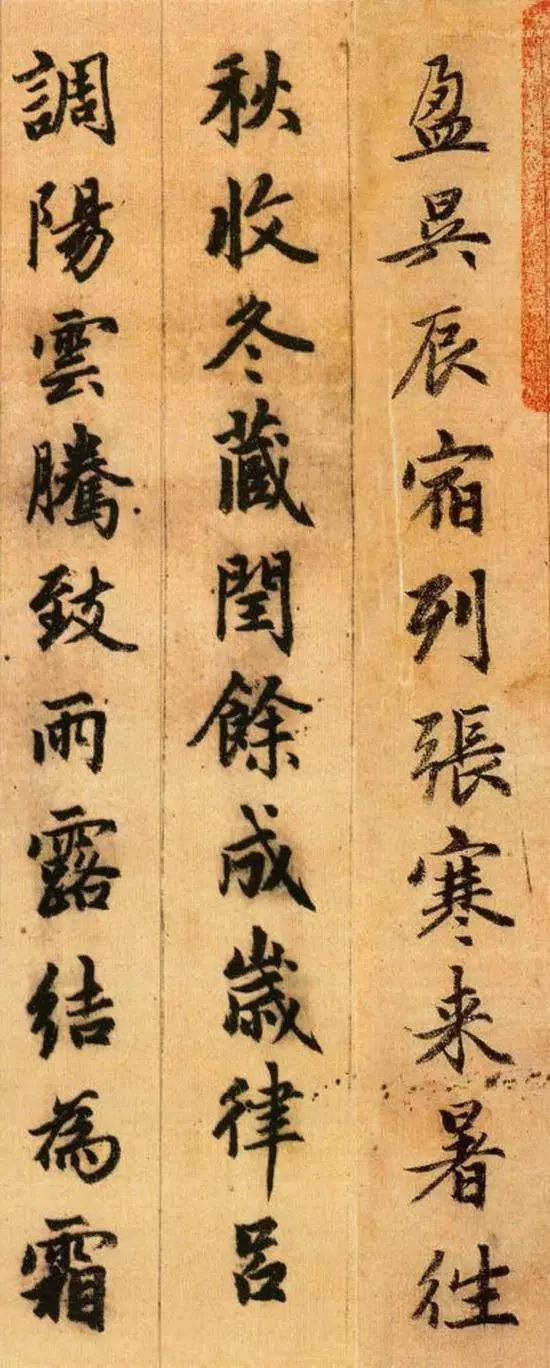 盈昃辰宿列張寒来暑往
秋收冬藏閏餘成歲律呂
調陽雲騰致雨露結為霜